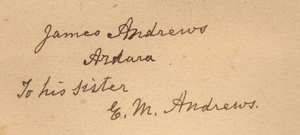 James Andrews
Ardara.
To his sister
E. M. Andrews.